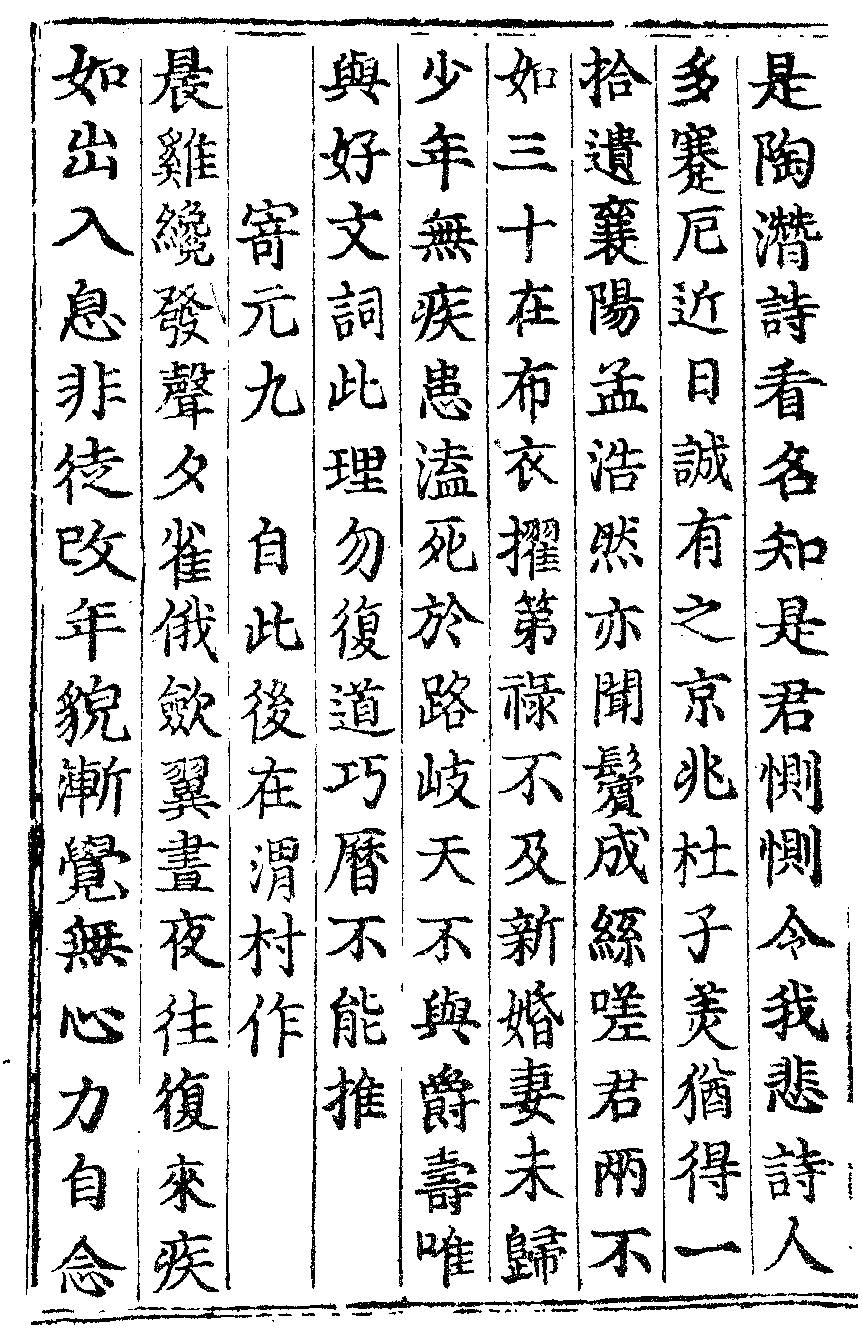 是陶潛詩看名知是君惻惻令我悲詩人
多蹇厄近日誠有之京兆杜子美猶得一
拾遺襄陽孟浩然亦聞鬢成絲嗟君兩不
如三十在布衣擢第祿不及新婚妻未歸
少年無疾患溘死於路岐天不與爵壽唯
與好文詞此理勿復道巧曆不能推
寄元九　自此後在渭村作
晨雞纔發聲夕雀俄歛翼晝夜往復來疾
如出入息非徒改年貌漸覺無心力自念